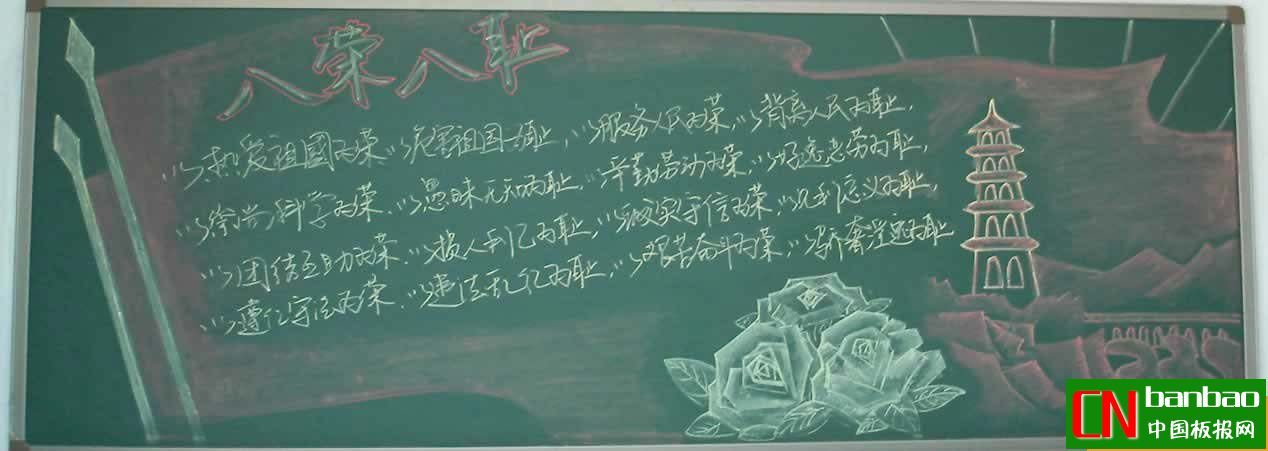 八荣八耻
以热爱祖國为荣 以危害祖国为耻，以服务人民为荣，以背离人民为耻，
以崇尚科学为荣，以愚昧无知为耻，以辛勤劳动为荣，以好逸恶劳为耻，
以团结互助为荣，以损人利己为耻，以诚实守信为荣，以见利忘义为耻，
以遵纪守法为荣，以违法乱纪为耻，以艰苦奋斗为荣，以骄奢淫逸为耻
CNbanbao
中国板报网